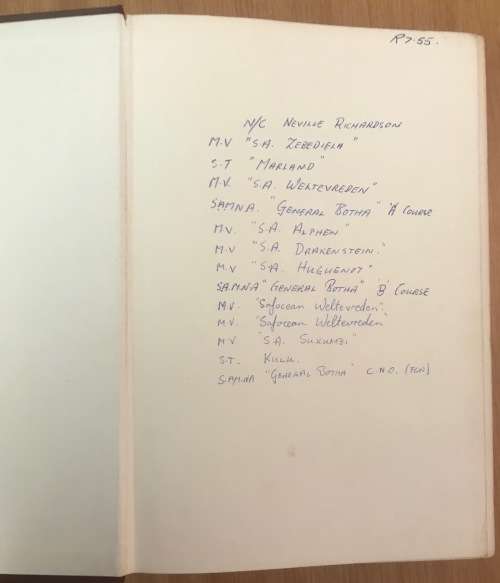 R7.55.
N/C NEVILLE RICHARDSON
M.V "S.A. ZEBEDIELA"
S.T "MARLAND"
M.V. "S.A. WELTEVREDEN"
S.A.M.N.A. "GENERAL BOTHA" 'A' COURSE
M.V. "S.A. ALPHEN"
M.V "S.A. DRAKENSTEIN."
M.V "S.A. HUGUENOT"
S.A.M.N.A "GENERAL BOTHA" 'B' COURSE
M.V. "Safocean Weltevreden".
M.V. "Safocean Weltevreden"
M.V "S.A.
S.T.
S.A.M.N.A "GENERAL BOTHA" C.N.O.